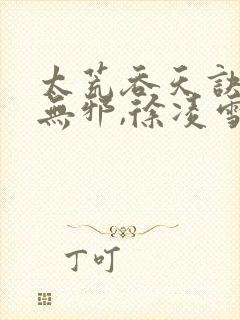 太荒吞天訣
無邪,徐凌雪
丁叮